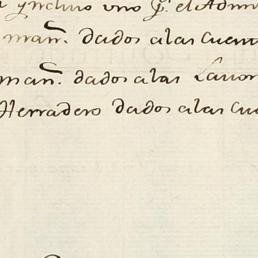 y ynclusō uno q̃. el Admi
mañ. dados alas cuent
mañ. dados alas Lavor
Herradero dados alas cu